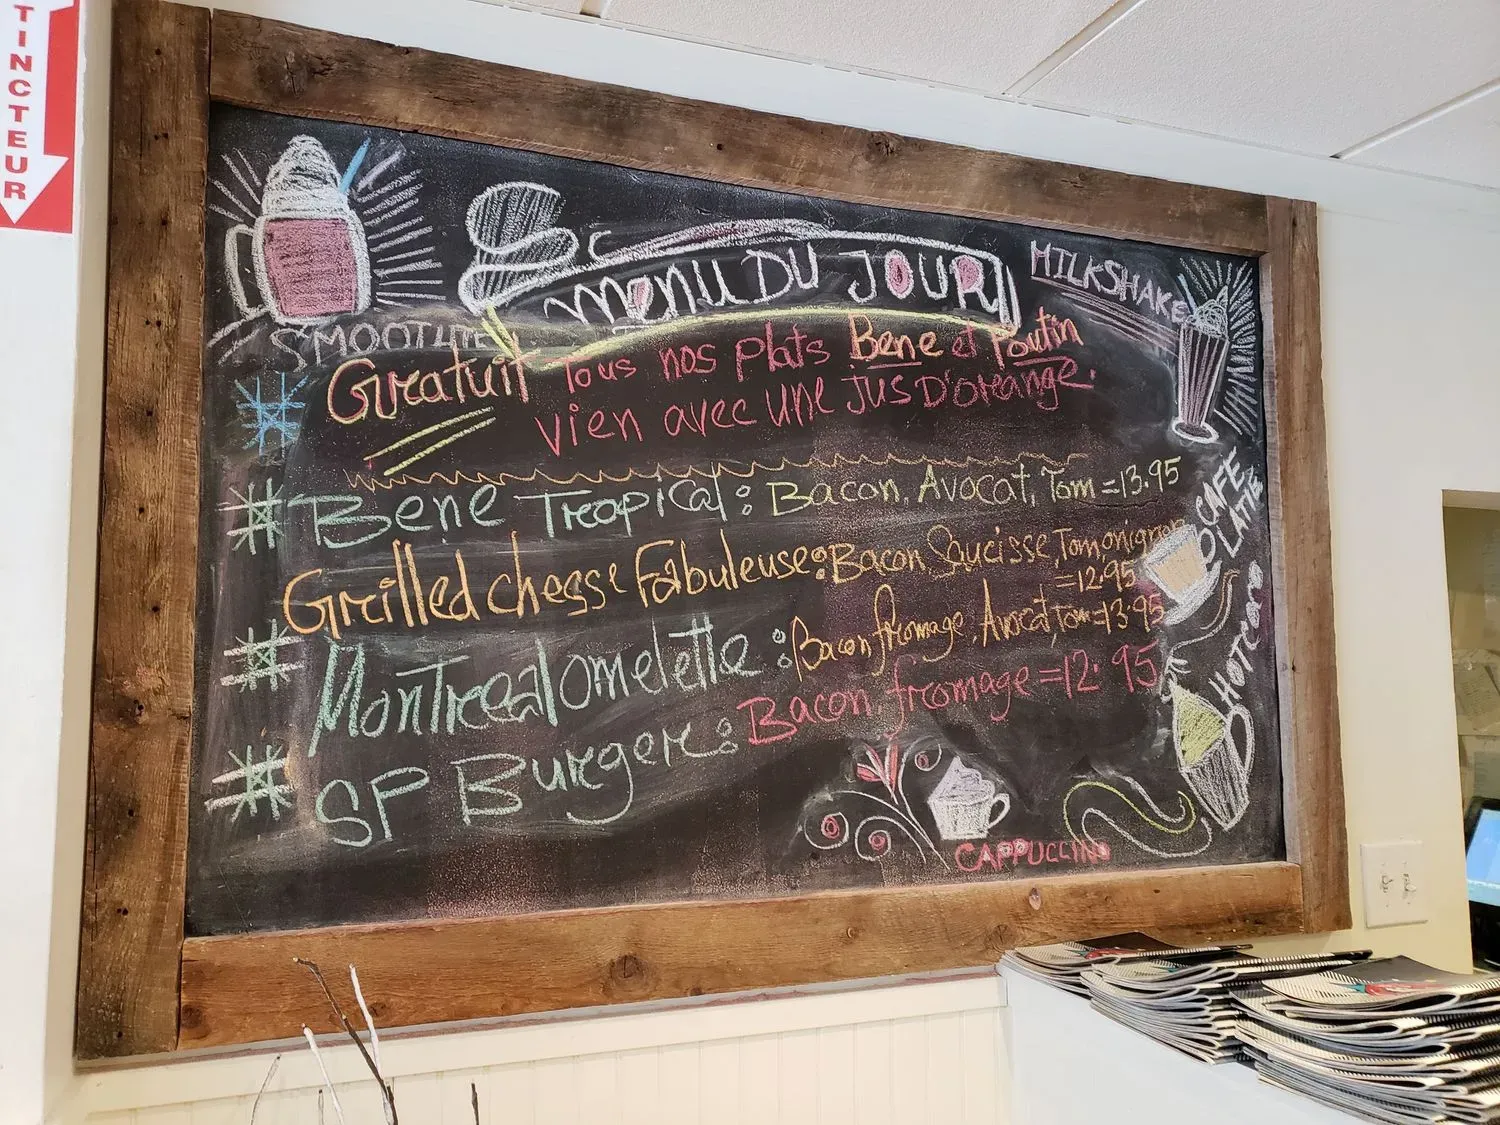 TINCTEUR
MENU DU JOUR
SMOOTHIE
MILKSHAKE
Gratuit Tous nos plats Bene et Poutin
vien avec une jus D'orange.
# Bene Tropical: Bacon, Avocat, Tom = 13.95
Grilled cheese Fabuleuse: Bacon Saucisse, Tom, onignon
= 12.95
# Montreal omelette: Bacon fromage, Avocat, Tom = 13.95
# SP Burger: Bacon, fromage = 12.95
CAFE
LATTE
HOTCOCO
CAPPUCCINO